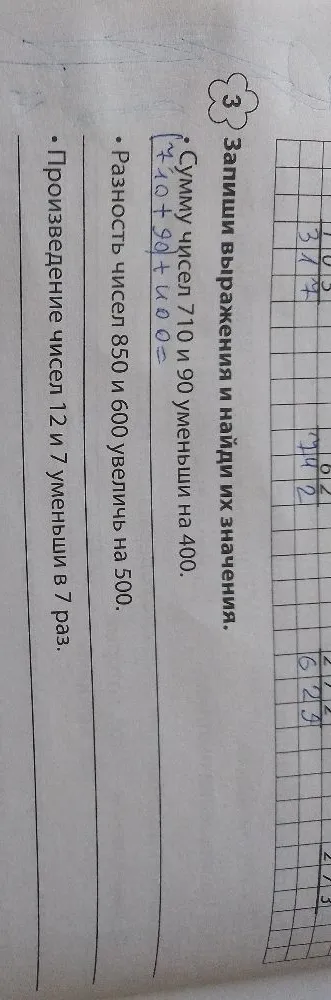 7 0 5
3 1 7
6 2
7 4 2
2 7 2
6 2 9
2 7 3
3 Запиши выражения и найди их значения.
• Сумму чисел 710 и 90 уменьши на 400.
(710+90)+400=
• Разность чисел 850 и 600 увеличь на 500.
• Произведение чисел 12 и 7 уменьши в 7 раз.